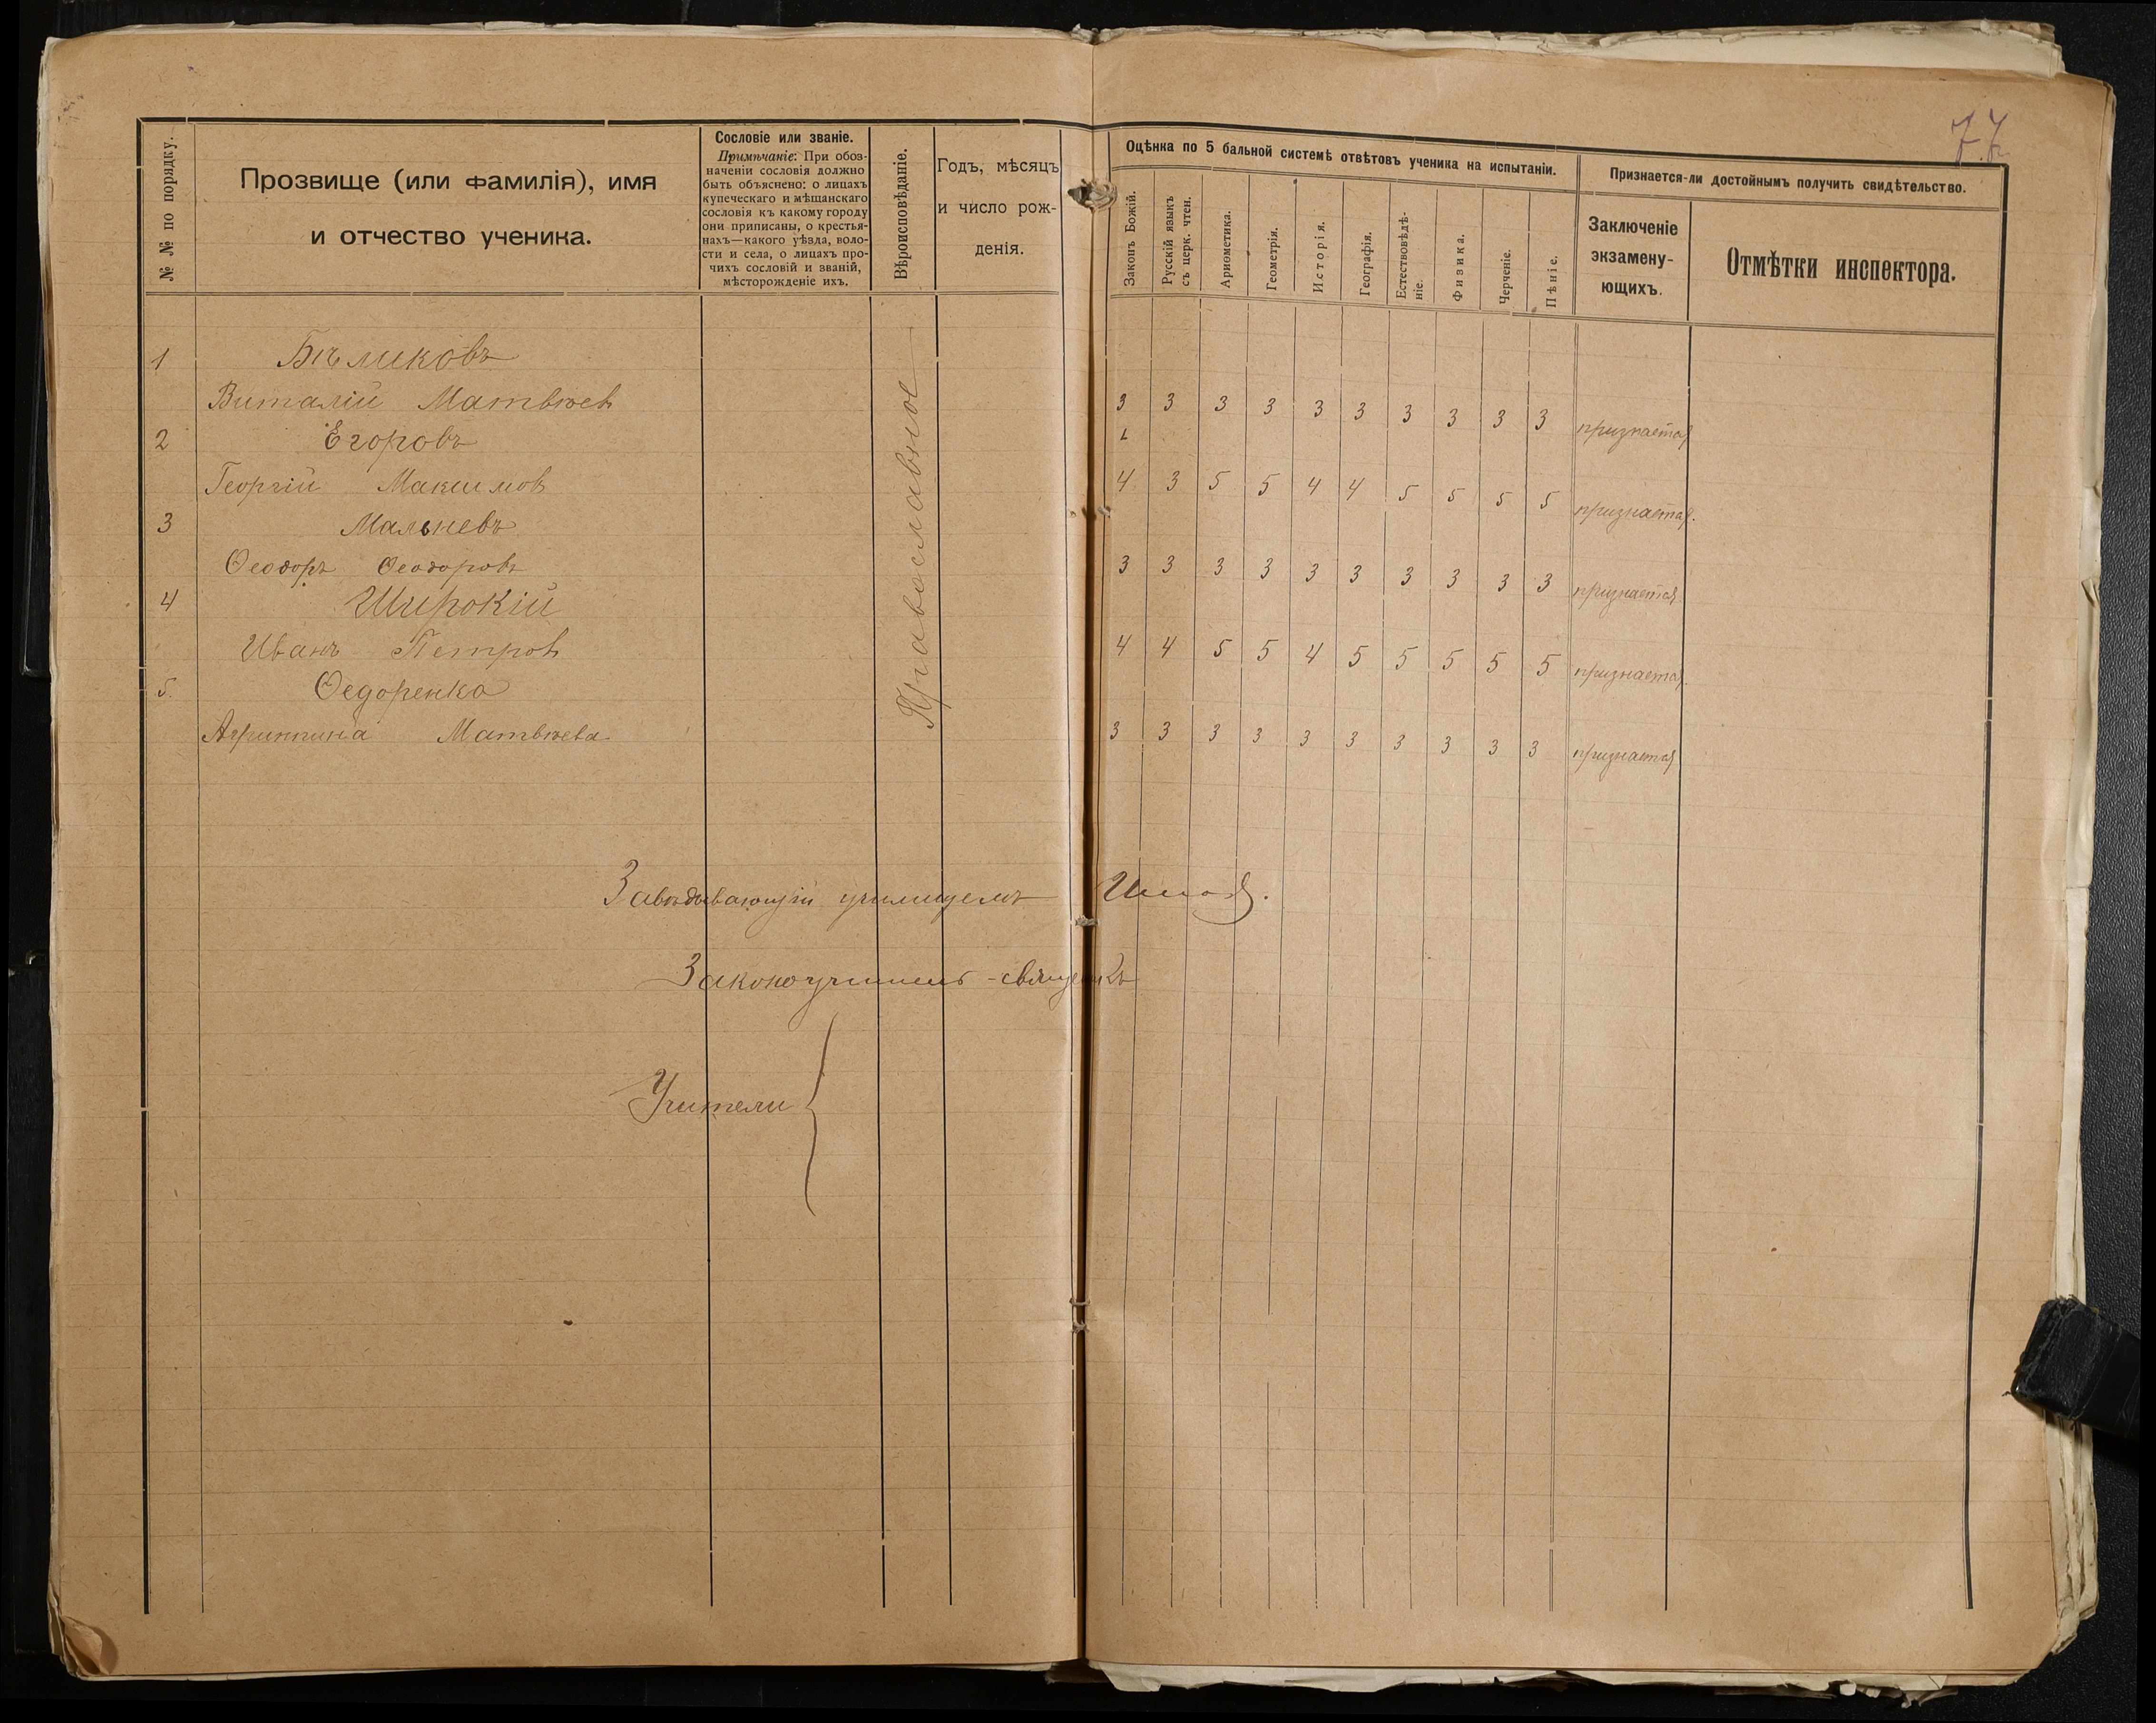 77
№ № по порядку.
Прозвище (или фамилія), имя
и отчество ученика.
Сословіе или званіе.
Примѣчаніе: При обоз-
наченіи сословія должно
быть объяснено: о лицахъ
купеческаго и мѣщанскаго
сословія къ какому городу
они приписаны, о крестья-
нахъ—какого уѣзда, воло-
сти и села, о лицахъ про-
чихъ сословій и званій,
мѣсторожденіе ихъ.
Вѣроисповѣданіе.
Годъ, мѣсяцъ
и число рож-
денія.
Оцѣнка по 5 бальной системѣ отвѣтовъ ученика на испытаніи.
Законъ Божій.
Русскій языкъ
съ церк. чтен.
Ариѳметика.
Геометрія.
Исторія.
Географія.
Естествовѣдѣ-
ніе.
Физика.
Черченіе.
Пѣніе.
Признается-ли достойнымъ получить свидѣтельство.
Заключеніе
экзамену-
ющихъ.
Отмѣтки инспектора.
1 Бѣликовъ
Виталій Матвѣев 3 3 3 3 3 3 3 3 3 3 признается
2 Егоровъ
Георгій Максимов 4 3 5 5 4 4 5 5 5 5 признается.
3 Мальневъ
Ѳеодоръ Ѳеодоровъ 3 3 3 3 3 3 3 3 3 3 признается
4 Широкій
Иванъ Петров 4 4 5 5 4 5 5 5 5 5 признается.
5. Ѳедоренко
Агриппина Матвѣева 3 3 3 3 3 3 3 3 3 3 признается
Православное
Завѣдывающій училищемъ
Законоучитель-священкъ
Учители